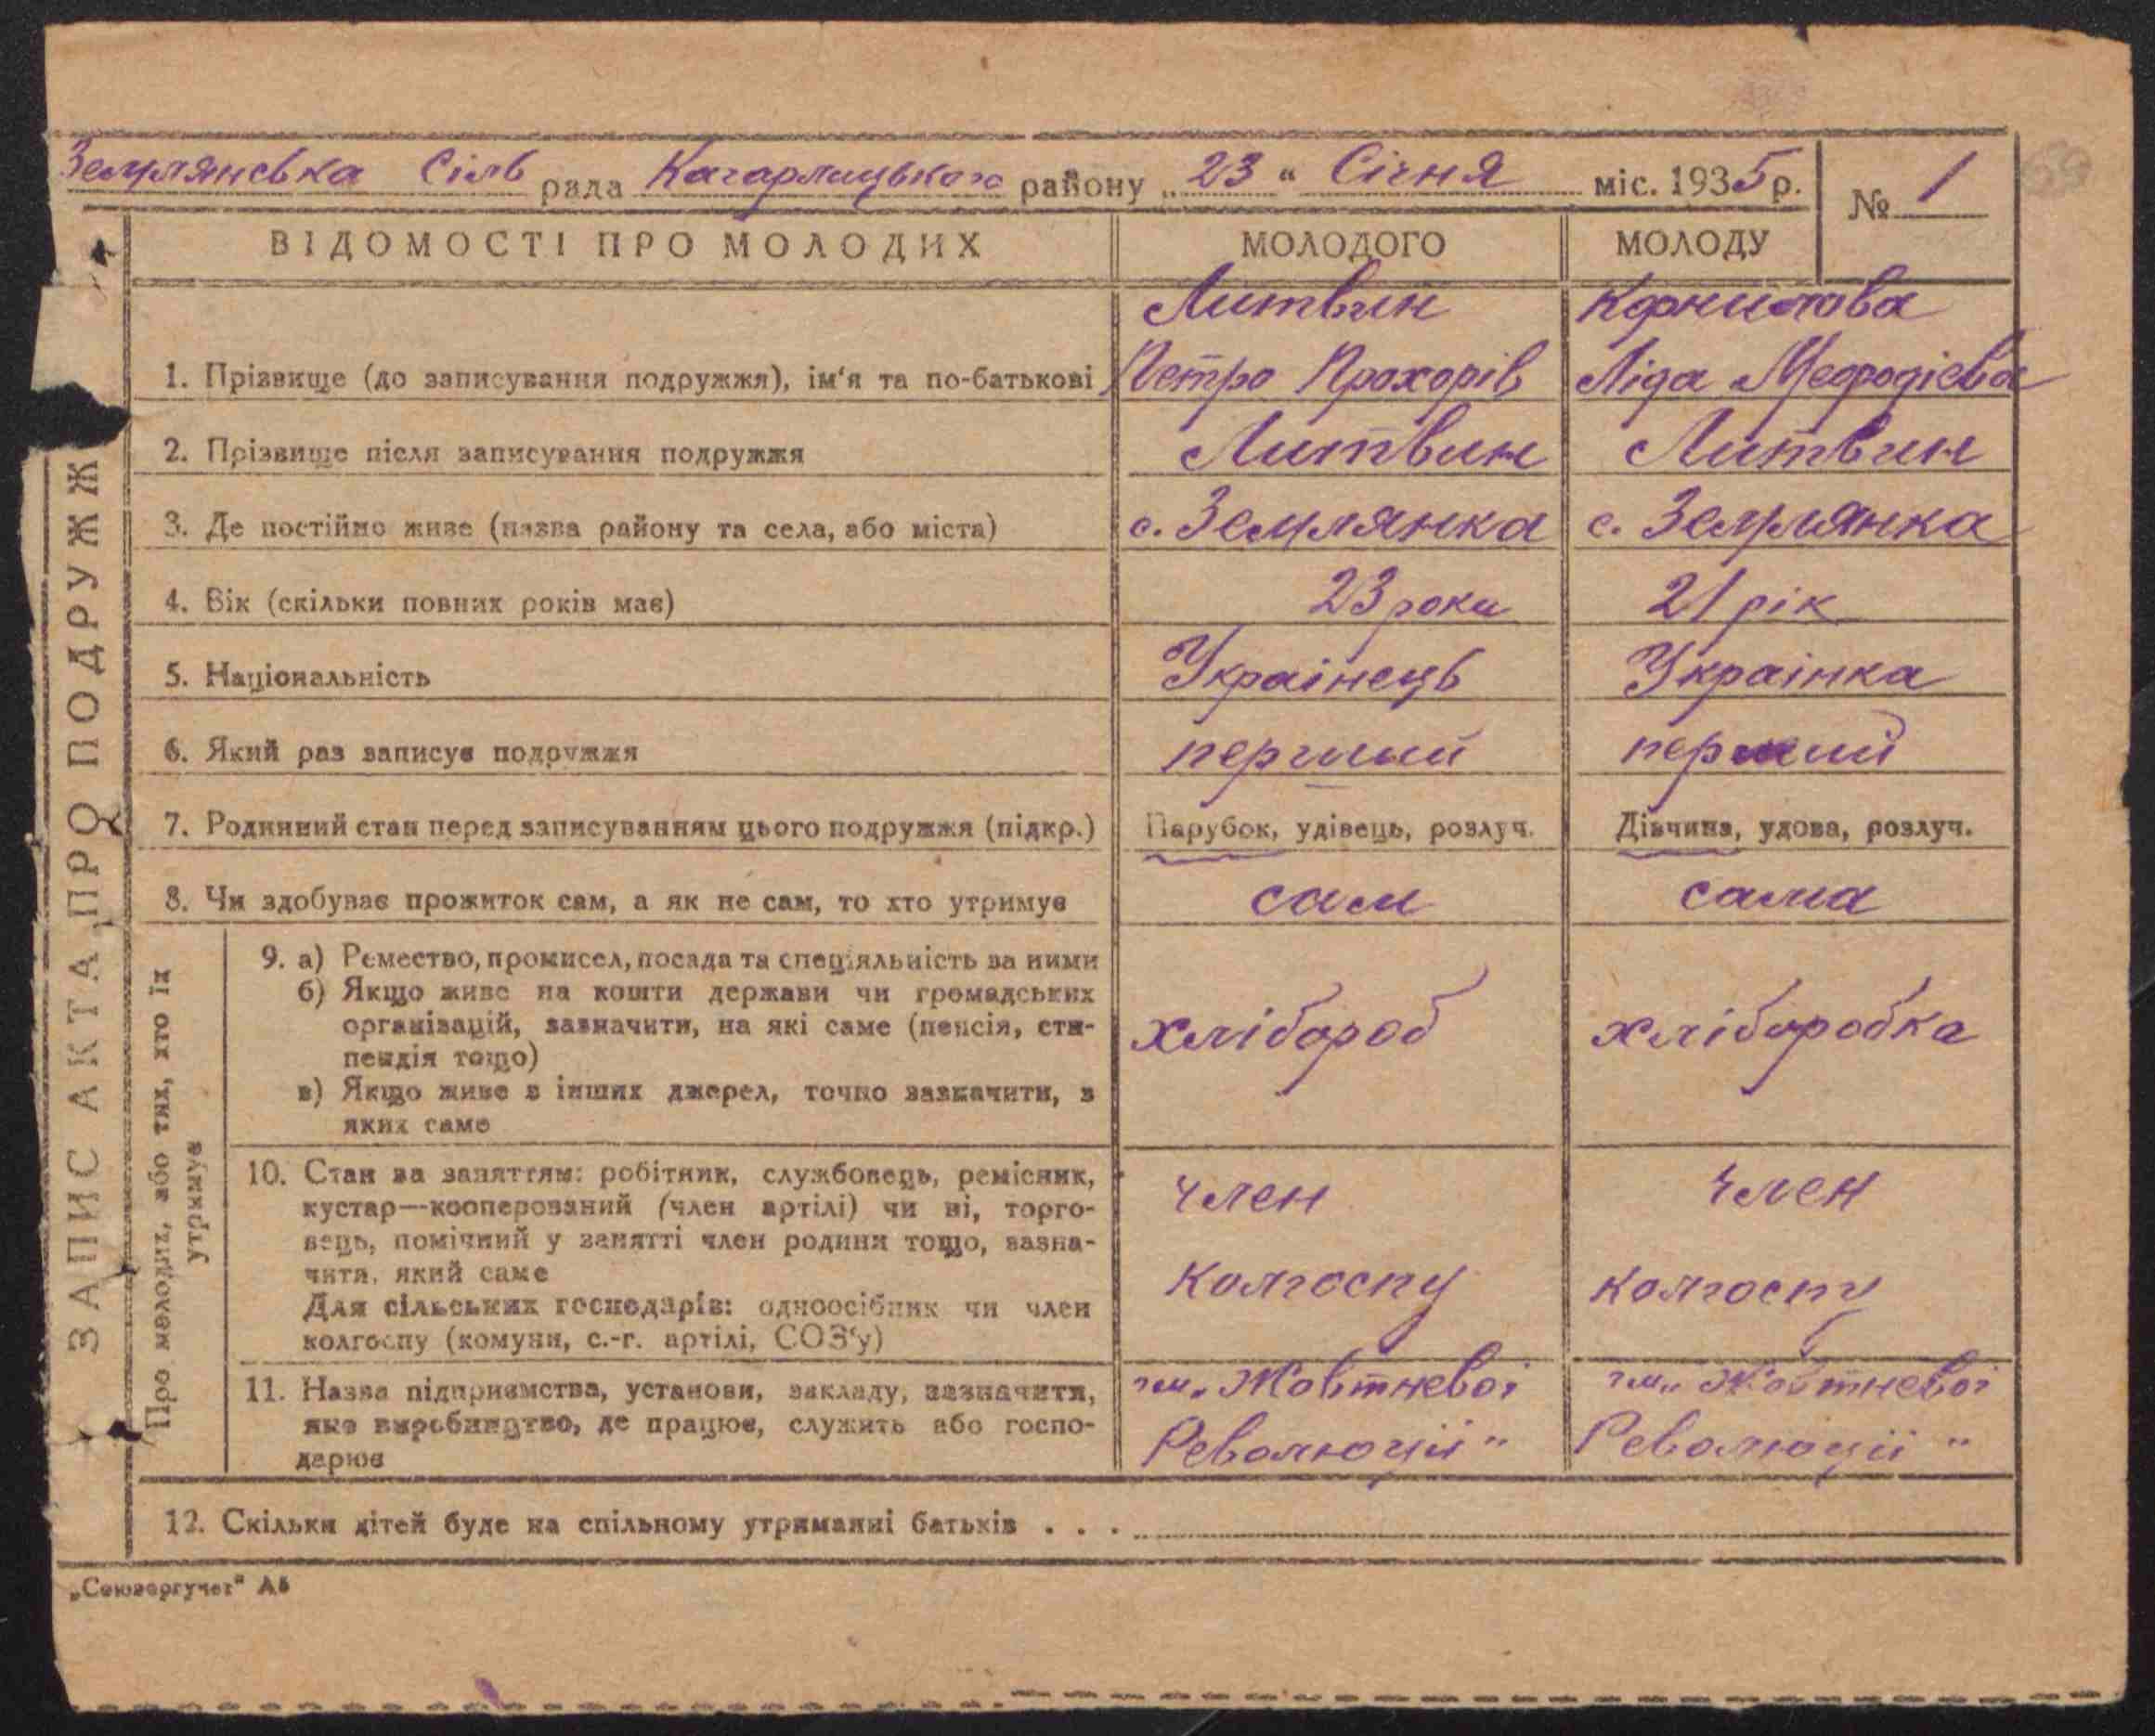 Землянська Сіль рада Кагарлицького району „23“ Січня міс. 1935 р. № 1
ВІДОМОСТІ ПРО МОЛОДИХ МОЛОДОГО МОЛОДУ
Литвин Корнилова
1. Прізвище (до записування подружжя), ім‘я та по-батькові Петро Прохорів Ліда Мефодієва
2. Прізвище після записування подружжя Литвин Литвин
3. Де постійно живе (назва району та села, або міста) с. Землянка с. Землянка
4. Вік (скільки повних років має) 23 роки 21 рік
5. Національність Українець Українка
6. Який раз записує подружжя перший перший
7. Родинний стан перед записуванням цього подружжя (підкр.) Парубок, удівець, розлуч. Дівчина, удова, розлуч.
8. Чи здобуває прожиток сам, а як не сам, то хто утримує сам сама
9. а) Ремество, промисел, посада та спеціяльність за ними
б) Якщо живе на кошти держави чи громадських
організацій, зазначити, на які саме (пенсія, сти-
пендія тощо) хлібороб хліборобка
в) Якщо живе з інших джерел, точно зазначити, з
яких саме
10. Стан за заняттям: робітник, службовець, ремісник, член член
кустар—кооперований (член артілі) чи ні, торго-
вець, помічний у занятті член родини тощо, зазна-
чити, який саме колгоспу колгоспу
Для сільських господарів: одноосібник чи член
колгоспу (комуни, с.-г. артілі, СОЗ‘у)
11. Назва підприємства, установи, закладу, зазначити, ім„ Жовтневої ім„ Жовтневої
яке виробництво, де працює, служить або госпо- Революції" Революції"
дарює
12. Скільки дітей буде на спільному утриманні батьків . . .
„Союзоргучет“ А5
ЗАПИС АКТА ПРО ПОДРУЖЖ
Про молодих, або тих, хто їх
утримує